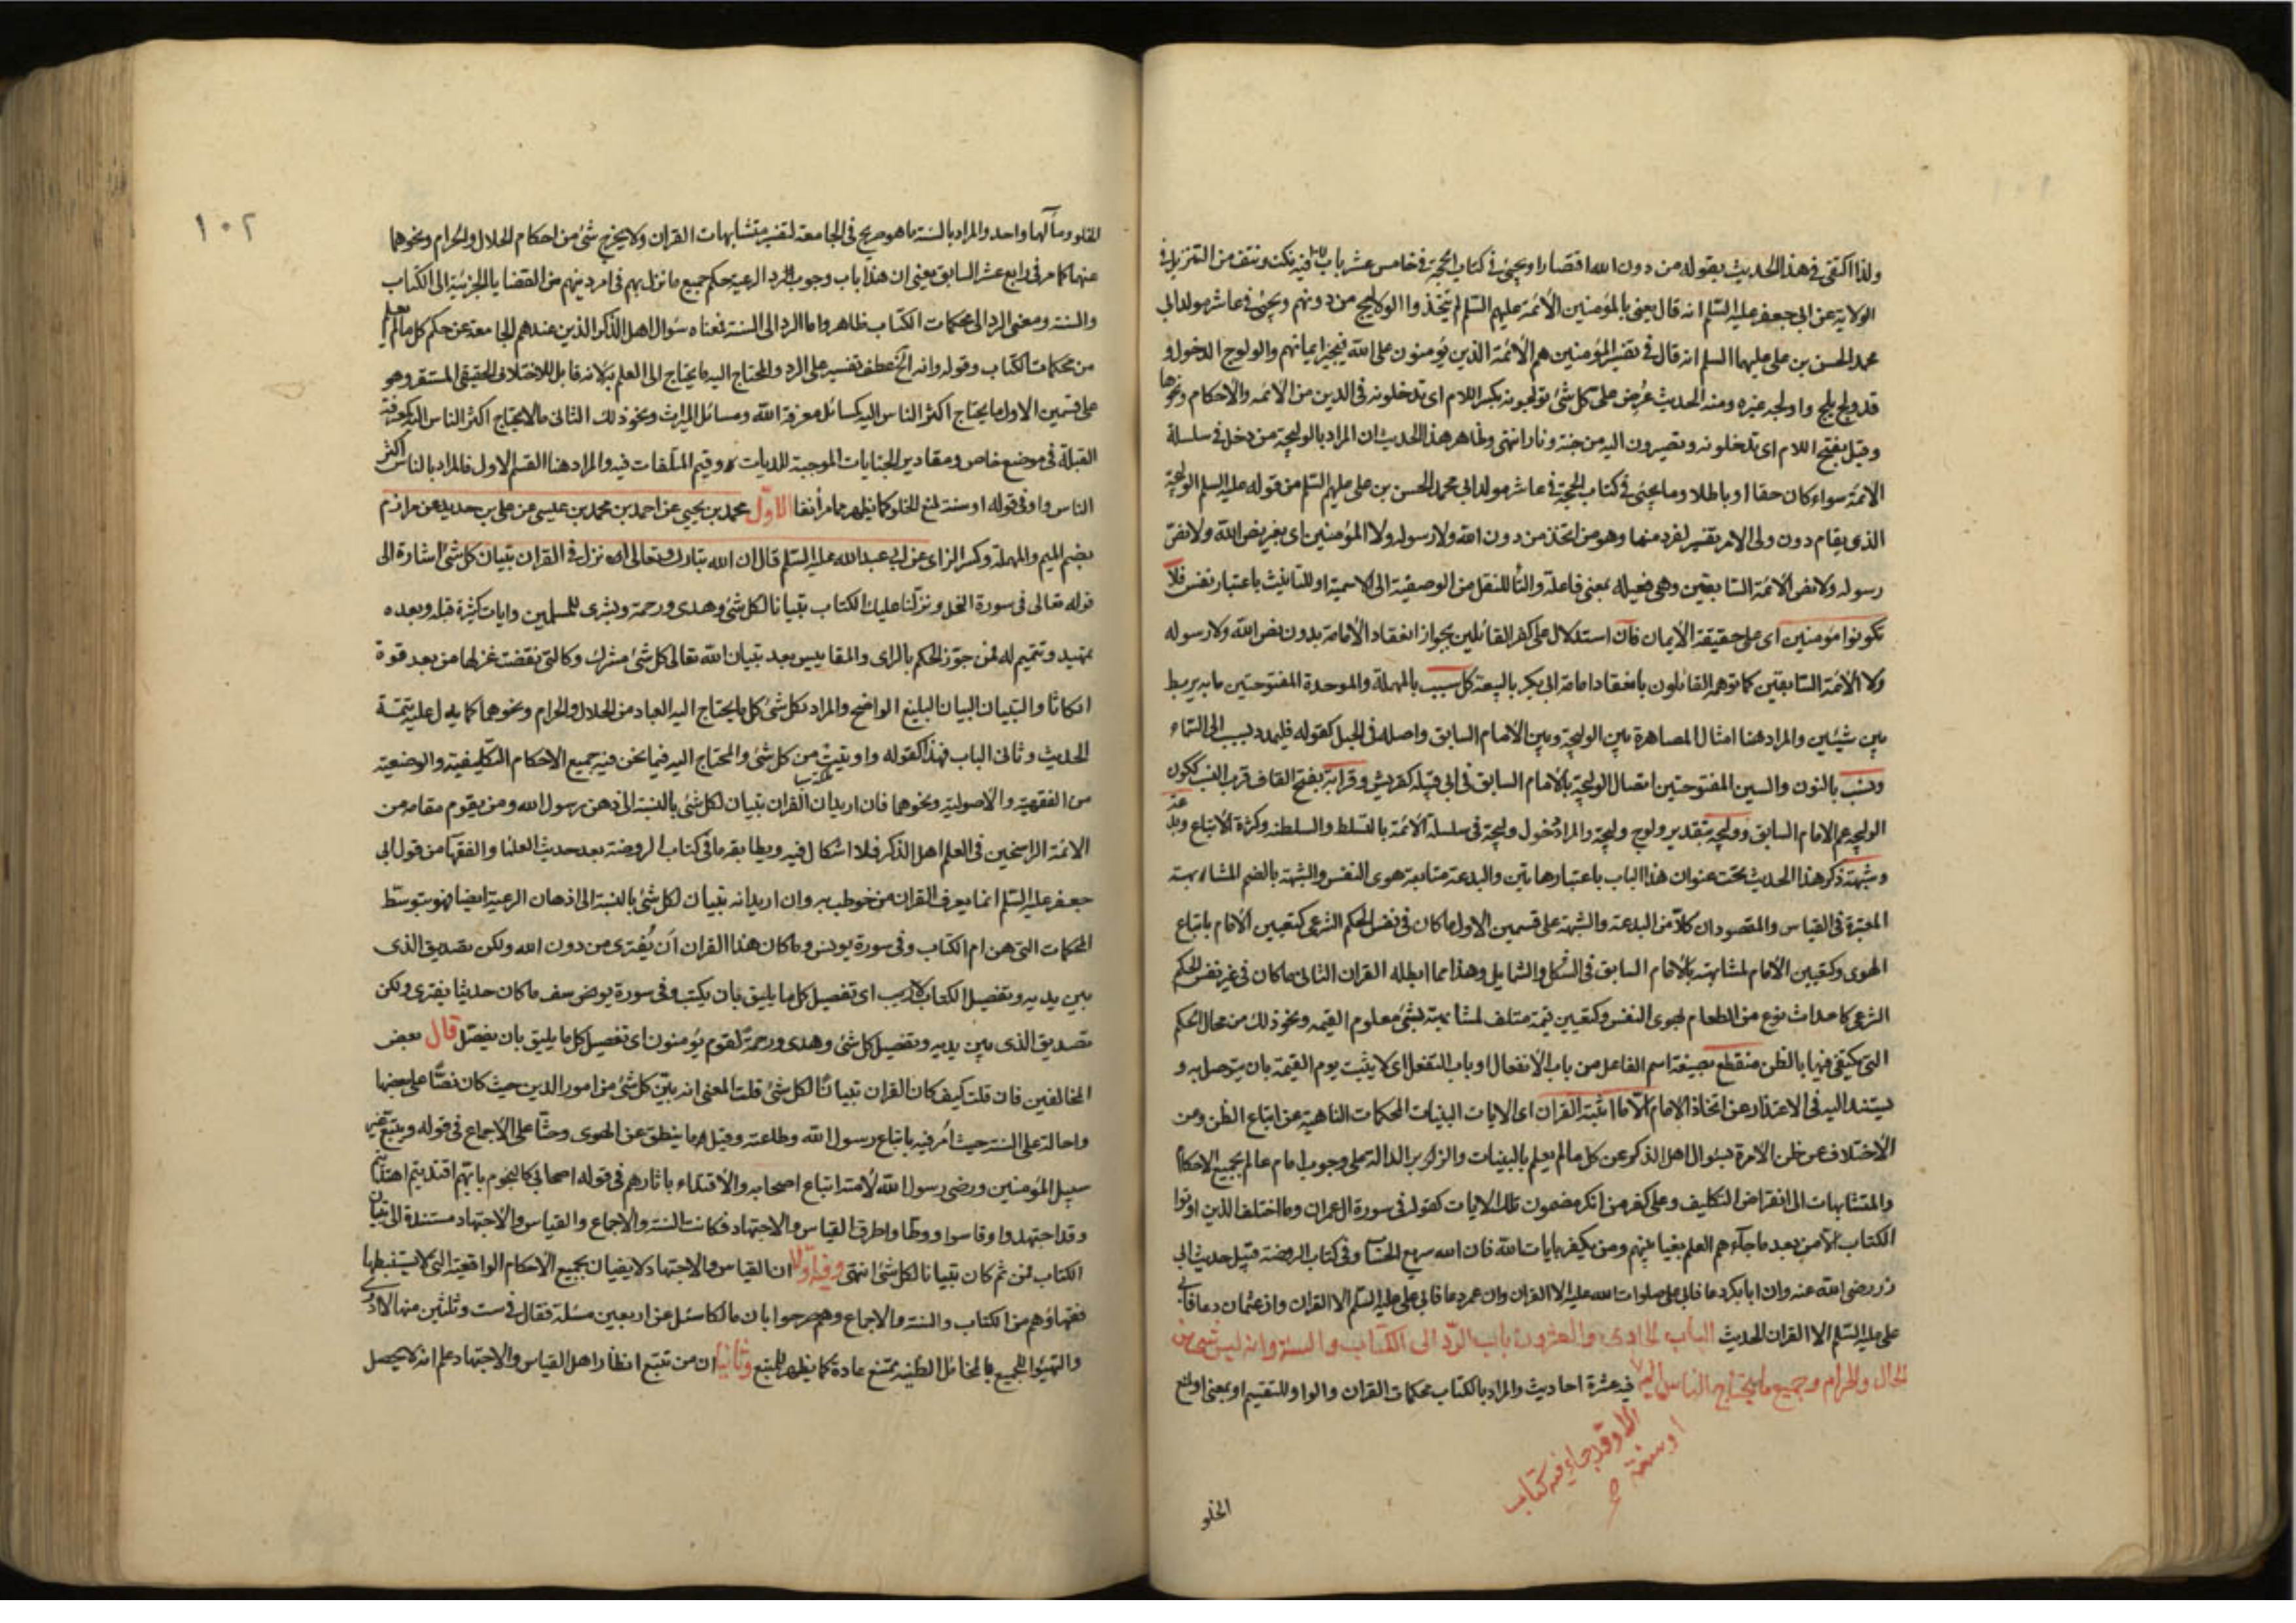 ولذا اكتفى في هذا الحديث بقوله من دون الله اقتصارا ويجئ في كتاب الحجة في خامس عشر باب فيه نكت ونتف من التنزيل في
الولاية عن ابي جعفر عليه السلم انه قال يعني بالمؤمنين الأئمة عليهم السلم لم يتخذوا الولايج من دونهم ويجئ في عاشر مولد ابي
محمد الحسن بن علي عليهما السلم انه قال في تفسير المؤمنين هم الأئمة الذين يؤمنون على الله فيجيز ايمانهم والولوج الدخول و
قد ولج يلج واولجه غيره ومنه الحديث عُرِض علي كل شئ تولجونه بكسر اللام اى تدخلونه في الدين من الائمه والاحكام ونحوها
وقيل بفتح اللام اى تدخلونه وتصيرون اليه من جنة ونار انتهى وظاهر هذا الحديث ان المراد بالوليجة من دخل في سلسلة
الائمة سواء كان حقا او باطلا وما يجئ في كتاب الحجة في عاشر مولد ابي محمد الحسن بن علي عليهم السلم من قوله عليه السلم الوليجة
الذي يقام دون ولي الامر تفسير لفرد منها وهو من اتخذ من دون الله ولا رسوله ولا المؤمنين اى بغير نص الله ولا نص
رسوله ولا نص الأئمة السابقين وهي فعيله بمعنى فاعلة والتاُ للنقل من الوصفية الى الاسمية او للتانيث باعتبار نفس فلا
تكونوا مؤمنين اى على حقيقة الأيمان فان استدلال على كفر القائلين بجواز انعقاد الأمامة بدون نص الله ولا رسوله
ولا الأئمة السابقين كما توهم القائلون بانعقاد امامة ابي بكر بالبيعة كل سبب بالمهملة والموحدة المفتوحتين ما به يربط
بين شيئين والمراد هنا امثال المصاهرة بين الوليجة وبين الأمام السابق واصله في الحبل كقوله فليمدد بسبب الى السماء
ونسب بالنون والسين المفتوحتين اتصال الوليجة بالأمام السابق في ابي قبيله كقريش وقرابة بفتح القاف قرب النسب ككون
الوليجة عم الامام السابق ووليجه بتقدير ولوج وليجة والمراد دخول وليجة في سلسلة الائمة بالتسلط والسلطنه وكثرة الأتباع وبدعة
وشبهة ذكر هذا الحديث تحت عنوان هذا الباب باعتبار هاتين والبدعة متابعة هوى النفس والشبهة بالضم المشابهة
المعتبرة في القياس والمقصود ان كلا من البدعة والشبهة على قسمين الاول ما كان في نفس الحكم الشرعي كتعيين الأمام باتباع
الهوى وكتعيين الأمام لمشابهته بالأمام السابق في الشكل والشمايل وهذا مما ابطله القران الثاني ما كان في غير نفس الحكم
الشرعي كاحداث نوع من الطعام لهوى النفس وكتعيين قيمة متلف لمشابهته بشئ معلوم القيمه ونحو ذلك من محال الحكم
التي يكتفى فيها بالظن منقطع بصيغة اسم الفاعل من باب الأنفعال او باب التفعل اى لا يثبت يوم القيمة بان يتوصل به و
يستند اليه في الاعتذار عن اتخاذ الإمام الا ما اثبته القران اى الايات البينات المحكمات الناهية عن اتباع الظن ومن
الأختلاف عن ظن الآمرة بسؤال اهل الذكر عن كل ما لم يعلم بالبينات والزبر الدالة على وجوب امام عالم بجميع الاحكام
والمتشابهات الى انقراض التكليف وعلى كفر من انكر مضمون تلك الايات كقوله في سورة ال عمران وما اختلف الذين اوتوا
الكتاب الا من بعد ما جاءهم العلم بغيا بينهم ومن يكفر بايات الله فان الله سريع الحساب وفي كتاب الروضة قبيل حديث ابي
ذر رضي الله عنه وان ابا بكر دعا فابى علي صلوات الله عليه الا القران وان عمر دعا فابى علي عليه السلم الا القران وان عثمان دعا فابى
علي عليه السلم الا القران الحديث الباب الحادي والعشرون باب الرد الى الكتاب والسنة وانه ليس شئ من
الحلال والحرام وجميع ما يحتاج الناس اليه فيه عشرة احاديث والمراد بالكتاب محكمات القران والواو للتقسيم او بمعنى او لمنع
الا وقد جاء فيه كتاب
او سنة صح
الخلو
١٠٢
الخلو ومآلهما واحد والمراد بالسنة ما هو صريح في الجامعة لتفسير متشابهات القران ولا يخرج شئ من احكام الحلال والحرام ونحوهما
عنهما كما مر في رابع عشر السابق يعني ان هذا باب وجوب رد الرعية حكم جميع ما نزل بهم في امر دينهم من القضايا الجزئية الى الكتاب
والسنة ومعنى الرد الى محكمات الكتاب ظاهر واما الرد الى السنة فمعناه سؤال اهل الذكر الذين عندهم الجامعة عن حكم كل ما لم يعلم
من محكمات الكتاب وقوله وانه الخ عطف تفسير على الرد والمحتاج اليه ما يحتاج الى العلم به لانه قابل للاختلاف الحقيقي المستقر وهو
على قسمين الاول ما يحتاج اكثر الناس اليه كمسائل معرفة الله ومسائل الميراث ونحو ذلك الثاني ما لا يحتاج اكثر الناس اليه كمعرفة
القبلة في موضع خاص ومقادير الجنايات الموجبة للديات وقيم المتلفات فيه والمراد هنا القسم الاول فالمراد بالناس اكثر
الناس واو في قوله او سنة لمنع الخلو كما يظهر مما مر آنفا الاول محمد بن يحيى عن احمد بن محمد بن عيسى عن علي بن حديد عن مرازم
بضم الميم والمهملة وكسر الزاى عن ابي عبد الله عليه السلم قال ان الله تبارك وتعالى انزل في القران تبيان كل شئ اشارة الى
قوله تعالى في سورة النحل ونزلنا عليك الكتاب تبيانا لكل شئ وهدى ورحمة وبشرى للمسلمين وايات كثيرة قبله وبعده
تمهيد وتتميم له فمن جوز الحكم بالراى والمقاييس بعد تبيان الله تعالى كل شئ مشرك وكالتي نقضت غزلها من بعد قوة
انكاثا والتبيان البيان البليغ الواضح والمراد بكل شئ كل ما يحتاج اليه العباد من الحلال والحرام ونحوهما كما يدل عليه تتمة
الحديث وثاني الباب فهذا كقوله واوتيت من كل شئ والمحتاج اليه فيما نحن فيه جميع الاحكام التكليفية والوضعية
من الفقهية والأصولية ونحوهما فان اريد ان القران تبيان لكل شئ بالنسبة الى ذهن رسول الله ومن يقوم مقامه من
الائمة الراسخين في العلم اهل الذكر فلا اشكال فيه ويطابقه ما في كتاب الروضة بعد حديث العلماء والفقهاء من قول ابي
جعفر عليه السلم انما يعرف القران من خوطب به وان اريد انه تبيان لكل شئ بالنسبة الى اذهان الرعية ايضا فهو بتوسط
المحكمات التي هن ام الكتاب وفي سورة يونس وما كان هذا القران ان يُفترى من دون الله ولكن تصديق الذى
بين يديه وتفصيل الكتاب لا ريب اى تفصيل كل ما يليق بان يكتب وفي سورة يوسف ما كان حديثا يفترى ولكن
تصديق الذى بين يديه وتفصيل كل شئ وهدى ورحمة لقوم يؤمنون اى تفصيل كل ما يليق بان يفصل قال بعض
المخالفين فان قلت كيف كان القران تبيانا لكل شئ قلت المعنى انه بيّن كل شئ من امور الدين حيث كان نصّا على بعضها
واحالة على السنة حيث اُمر فيه باتباع رسول الله وطاعته وقيل وما ينطق عن الهوى وحثا على الأجماع في قوله ويتبع غير
سبيل المؤمنين ورضى رسول الله لأمته اتباع اصحابه والأقتداء باثارهم في قوله اصحابي كالنجوم بايهم اقتديتم اهتديتم
وقد اجتهدوا وقاسوا ووطأوا طرق القياس والاجتهاد فكانت السنة والأجماع والقياس والأجتهاد مستندة الى تبيان
الكتاب فمن ثم كان تبيانا لكل شئ انتهى وفيه اولا ان القياس والاجتهاد لا يفيان بجميع الأحكام الواقعية التي لا يستنبطها
فقهاؤهم من الكتاب والسنة والاجماع وهم صرحوا بان مالكا سئل عن اربعين مسئلة فقال في ست وثلثين منها لا ادري
والتهيؤ للجميع بالمخائل الظنية ممتنع عادة كما يظهر للمتتبع وثانيا ان من تتبع انظار اهل القياس والاجتهاد علم انه لا يحصل